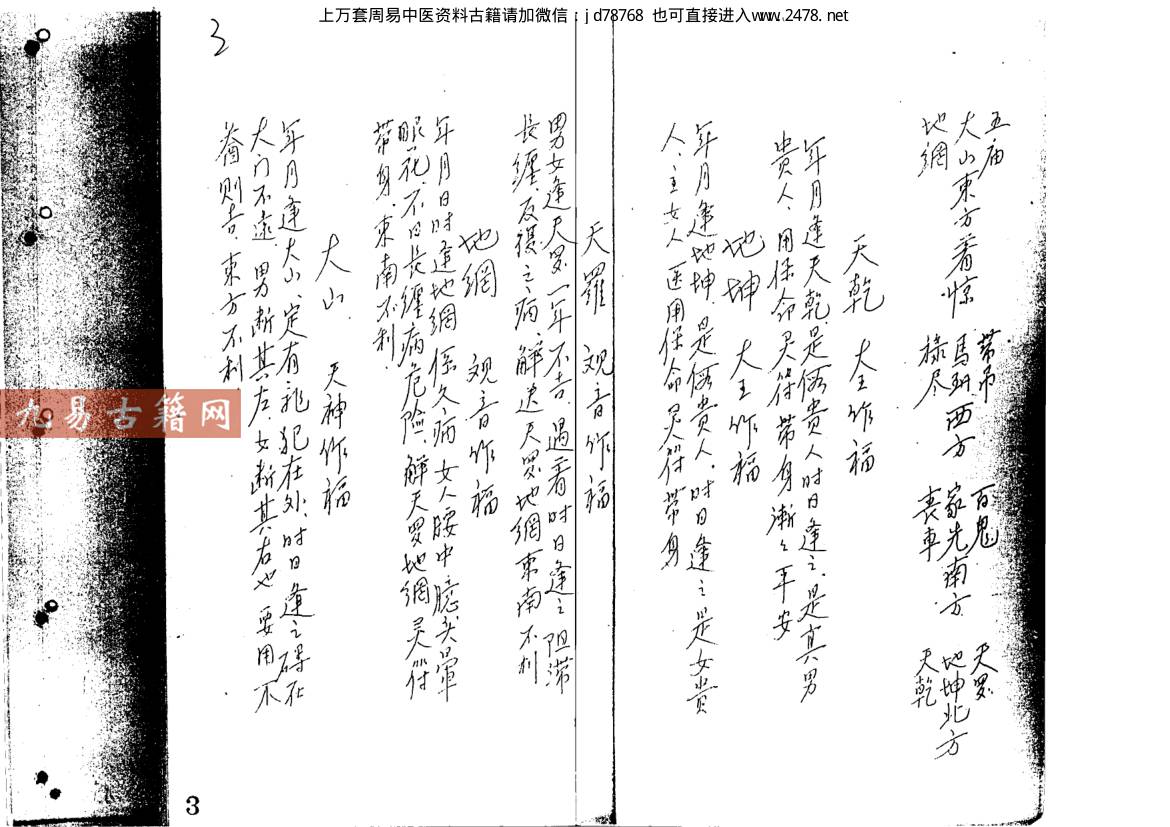 上万套周易中医资料古籍请加微信：jd78768 也可直接进入www.2478.net
五庙 带吊 百鬼 天罗
大山東方着惊 馬 西方 家先南方 地坤北方
地網 禄尽 丧車 天乾
天乾 大王作福
年月逢天乾是俻貴人时日逢之是真男
貴人用保命灵符带身漸々平安
地坤 大王作福
年月逢地坤是俻貴人时日逢之是女貴
人主女人 用保命灵符带身
天羅 观音作福
男女逢天罗一年不吉過者时日逢之阻滞
長缠反復之病解送天罗地網東南不利
地網 观音作福
年月日时逢地網係久病女人腰中 头暈
眼花不日長缠病危险解天罗地網灵符
带身東南不利
大山 天神作福
年月逢大山定有 犯在外时日逢之碍在
大门不遠男断其左女断其右也要用不
則吉東方不利
九易古籍网
3
3